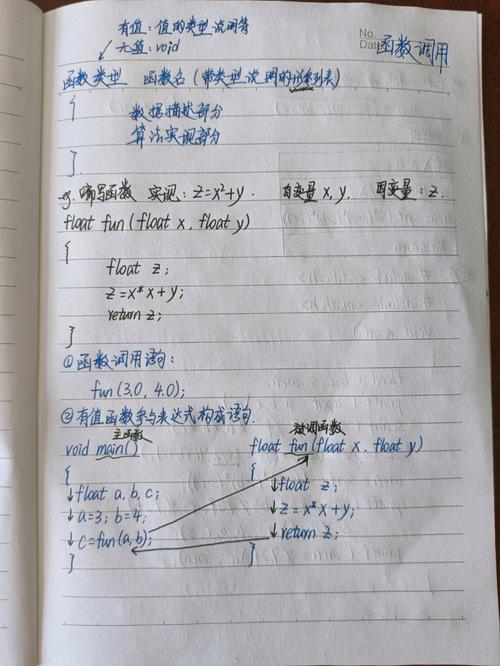 有值：值的类型说明符
无值：void
No.
Date
函数调用
函数类型 函数名（带类型说明的形参列表）
{
数据描述部分
算法实现部分
}
eg. 编写函数 实现：z=x²+y. 自变量x,y. 因变量：z.
float fun(float x, float y)
{
float z;
z=x*x+y;
return z;
}
①函数调用语句：
fun(3.0, 4.0);
②有值函数参与表达式构成语句.
主函数 被调函数
void main() float fun(float x, float y)
{ {
float a, b, c; float z;
a=3; b=4; z=x*x+y;
c=fun(a,b); return z;
} }